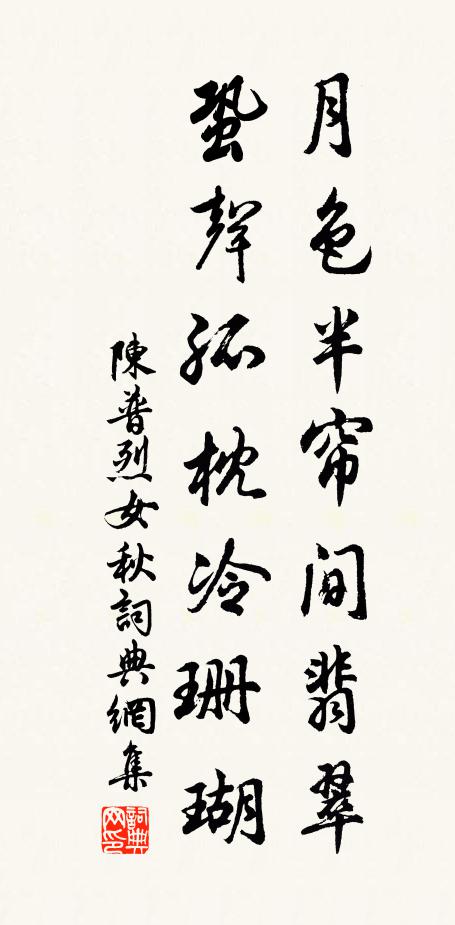 月色半帘间翡翠
蛩聲孤枕冷珊瑚
陳普烈女秋詞典網集
詞典網印